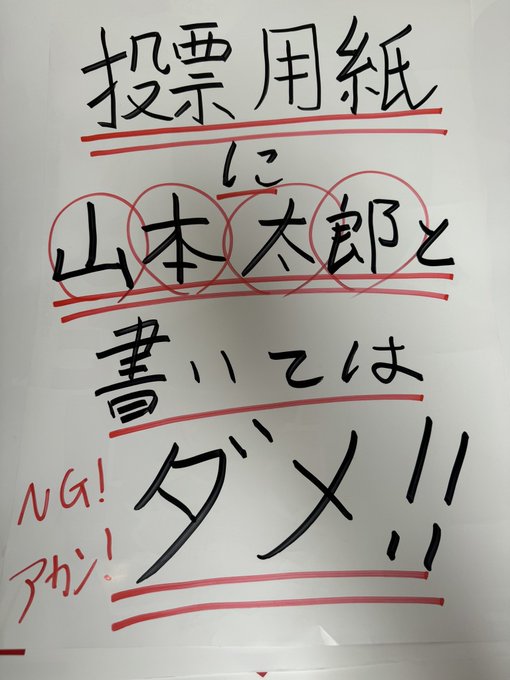 投票用紙
に
山本太郎と
書いては
ダメ!!
NG!
アカン!